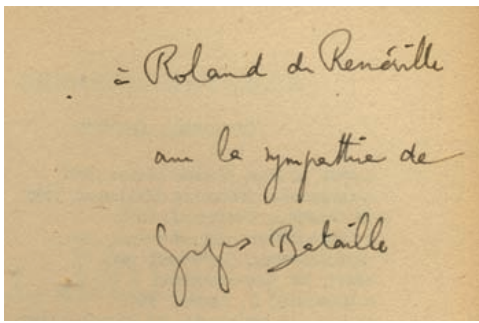 à Roland de Renéville
avec la sympathie de
Georges Bataille